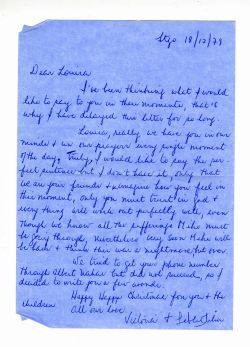 Stgo 18/12/79
Dear Louisa
I've been thinking what I would
like to say to you in these moments, that is
why I have delayed this letter for so long.
Louisa, really we have you in our
minds & in our prayers every single moment
of the day. Truly, I would like to say the per-
fect sentence but I don't have it, only that
we are your friends & imagine how you feel in
this moment, only you must trust in God &
everything will work out perfectly well, even
though we know all the sufferings Mike must
be going through. Nevertheless very soon Mike will
be back & think this was a nightmare, but over
We tried to get your phone number
through Albert but did not succeed, so I
decided to write you a few words.
Happy Happy Christmas for you & the
children
All our love
Victoria &